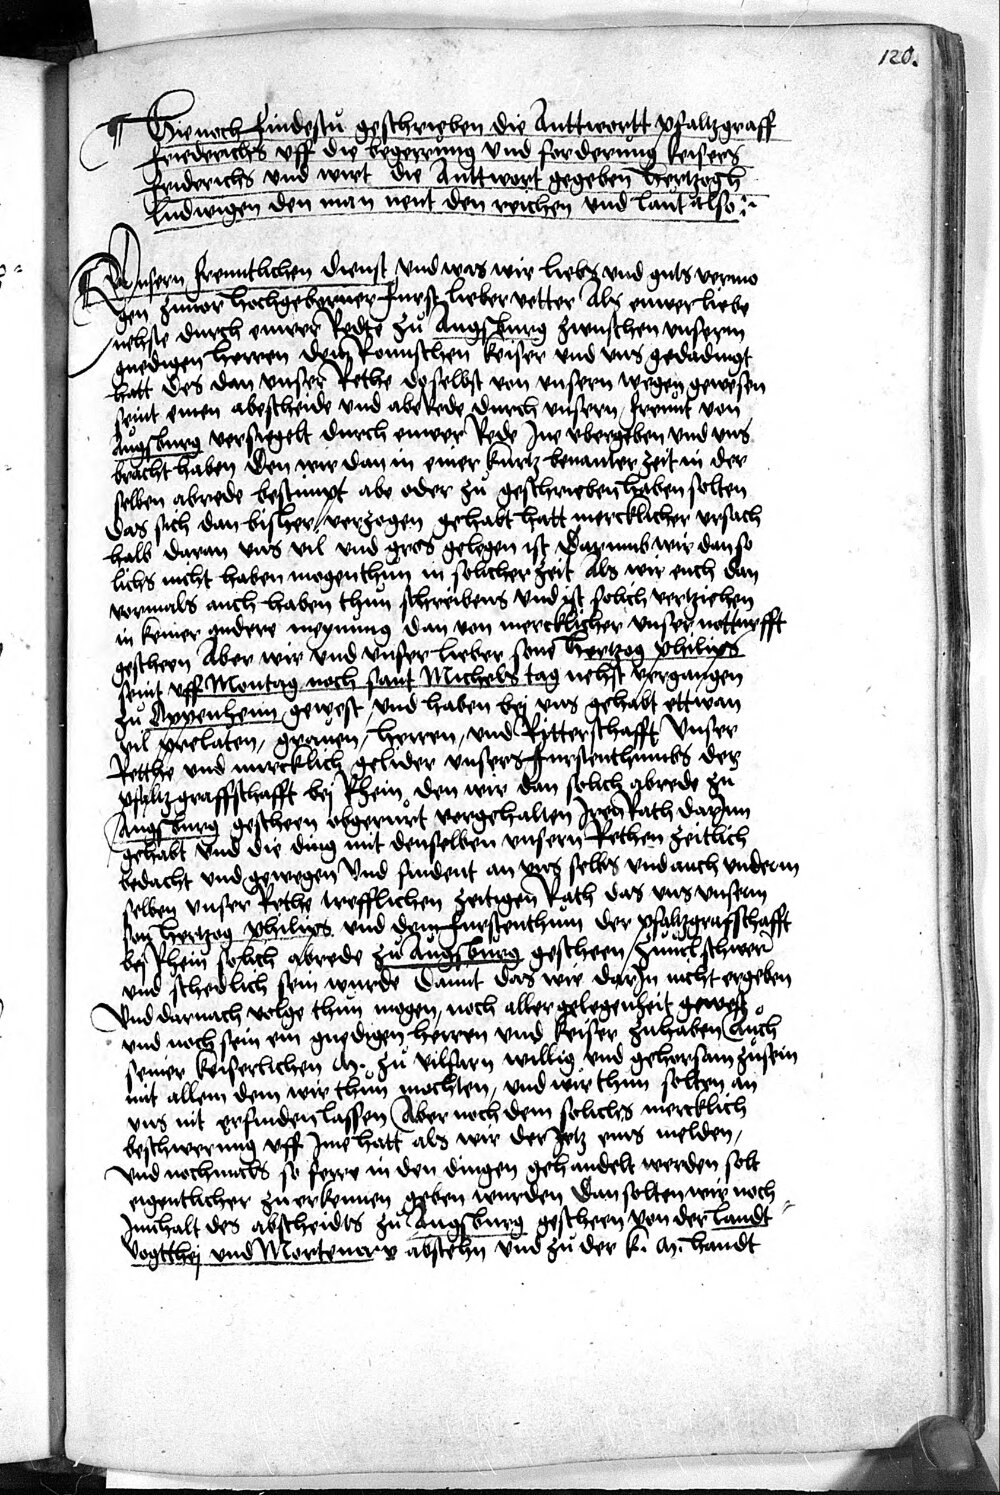 120.
Hie noch findestu geschrieben die Anttwortt pfaltzgraff
friederichs vff die begerrung vnd forderung keisers
friderichs vnd wirt die Anttwort gegeben hertzogh
Ludwigen den man nent den reichen vnd laut also
Vnsern freuntlichen dienst vnd was wir liebs vnd guts vermo
gen zuuor hochgeborner furst lieber vetter Als euwer liebe
nehste durch euwer Redte zu Augspurg zwuschen vnserm
gnedigen herren dem Romschen keiser vnd vns gedadingt
hatt des dan vnser Rethe doselbst von vnsern wegen gewesen
seint einen abescheide vnd abe Rede durch vnsern freunt von
Augspurg versiegelt durch euwer Rede Ine vbergeben vnd vns
bracht haben Den wir dan in einer kurtz benanter zeit in der
selben abrede bestimpt abe oder zu geschrieben haben solten
Das sich dan bisher verzogen gehabt hatt mercklicher vrsach
halb daran vns vil vnd gros gelegen ist Darumb wir dan so
lichs nicht haben mogen thun in solicher zeit Als wir euch dan
vormals auch haben thun schreibens vnd ist solich vertziehen
in keiner andere meynung dan von mercklicher vnser notturfft
gescheen Aber wir vnd vnser lieber sone Hertzog philips
seint vff Montag noch sant Michels tag nehst vergangen
zu Oppenheim gewest vnd haben bei vns gehabt ettwan
vil prelaten, grauen, herren, vnd Ritterschafft Vnser
Retthe vnd mercklich gelider vnsers furstenthumbs der
pfaltzgraffschafft bej Rhein den wir dan solich abrede zu
Augspurg gescheen obgerurt vorgehalten Iren Rath darum
gehabt vnd die ding mit denselben vnsern Rethen zeitlich
bedacht vnd gewegen Vnd findent an vns selbs vnd auch vnderm
selben vnser Rethe trefflichen zeitigen Rath das vns vnserm
son hertzog philips vnd dem furstenthum der pfaltzgrafschafft
bej Rhein solich abrede zu Augspurg gescheen zuuil schwer
vnd schedlich sein wurde Damit das wir darIn nicht ergeben
Vnd darnach volge thun mogen, noch aller gelegenheit gewest
vnd noch sein ein gnedigen herren vnd keiser zuhaben Auch
seiner keiserlichen M. zu vilfarn willig vnd gehorsam zusein
mit allem dem wir thun mochten, vnd wir thun solten an
vns nit erfinden lassen Aber noch dem solichs mercklich
beschwerung vff Ime hatt als wir der Jetz eins melden,
vnd nochmals so ferre in den dingen gehandelt werden solt
eigentlicher zuerkennen geben wurden Dan solten wir noch
Innhalt des abscheidts zu Augspurg gescheen von der landt
vogtthej vnd Mortenaw abstehn vnd zu der k. M. handt